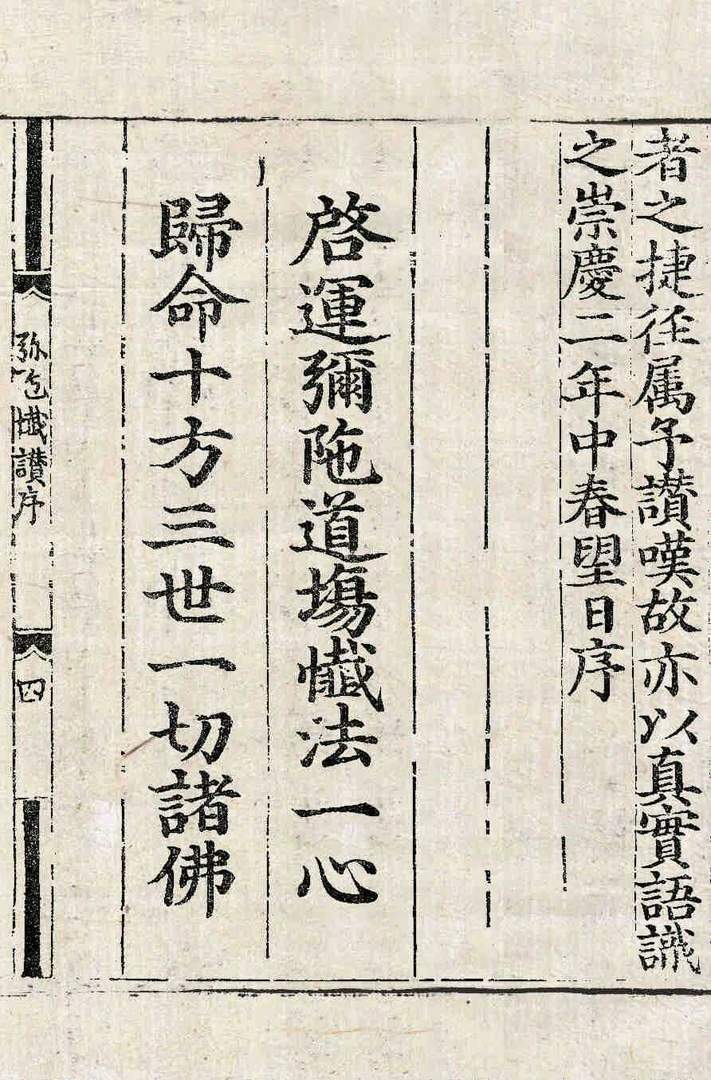 者之捷径属予讃嘆故亦以真實語識
之崇慶二年中春朢日序
啓運彌陁道塲懴法一心
歸命十方三世一切諸佛
弥陁懴讃序
四